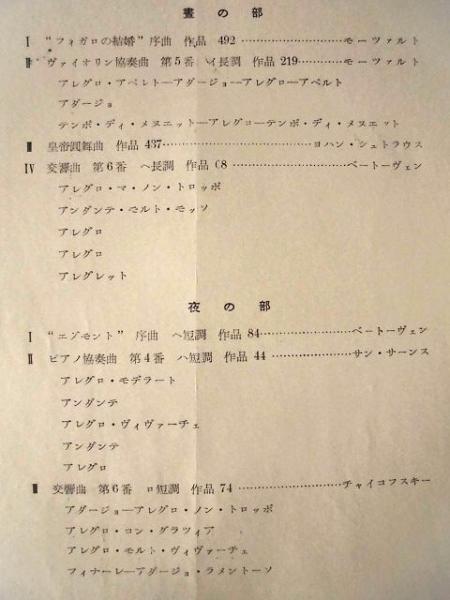 晝の部
I “フィガロの結婚” 序曲 作品 492 ………………… モーツァルト
II ヴァイオリン協奏曲 第5番 イ長調 作品 219 ………… モーツァルト
アレグロ・アペルト―アダージョ―アレグロ―アペルト
アダージョ
テンポ・ディ・メヌエット―アレグロ―テンポ・ディ・メヌエット
III 皇帝圓舞曲 作品 437 ………………… ヨハン・シュトラウス
IV 交響曲 第6番 ヘ長調 作品 68 ………………… ベートーヴェン
アレグロ・マ・ノン・トロッポ
アンダンテ・モルト・モッソ
アレグロ
アレグロ
アレグレット
夜の部
I “エグモント” 序曲 ヘ短調 作品 84 ………………… ベートーヴェン
II ピアノ協奏曲 第4番 ハ短調 作品 44 ………………… サン・サーンス
アレグロ・モデラート
アンダンテ
アレグロ・ヴィヴァーチェ
アンダンテ
アレグロ
III 交響曲 第6番 ロ短調 作品 74 ………………… チャイコフスキー
アダージョ―アレグロ・ノン・トロッポ
アレグロ・コン・グラツィア
アレグロ・モルト・ヴィヴァーチェ
フィナーレ―アダージョ・ラメントーソ